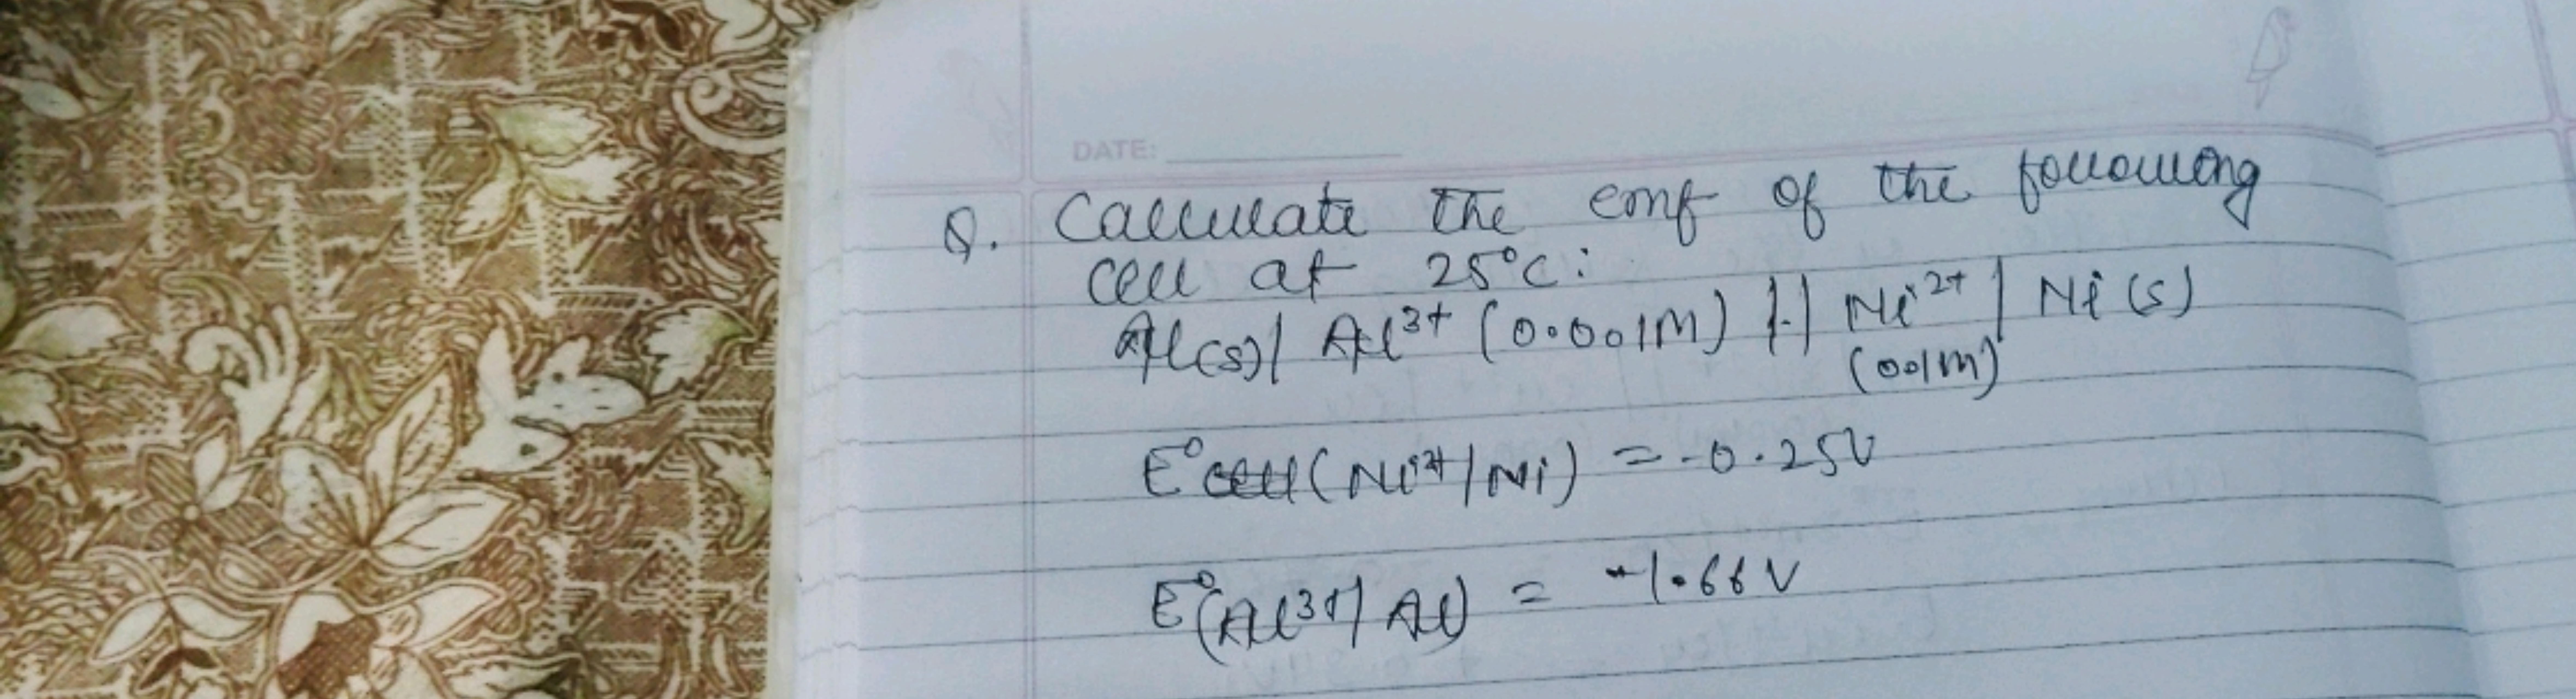 DATE:
Q. Calculate the emf of the following
cell at 25°C:
Al(s)| Al³⁺ (0.001M) || Ni²⁺ | Ni(s)
(0.01M)
E°cell(Ni²⁺/Ni) = -0.25V
E°(Al³⁺/Al) = -1.66V